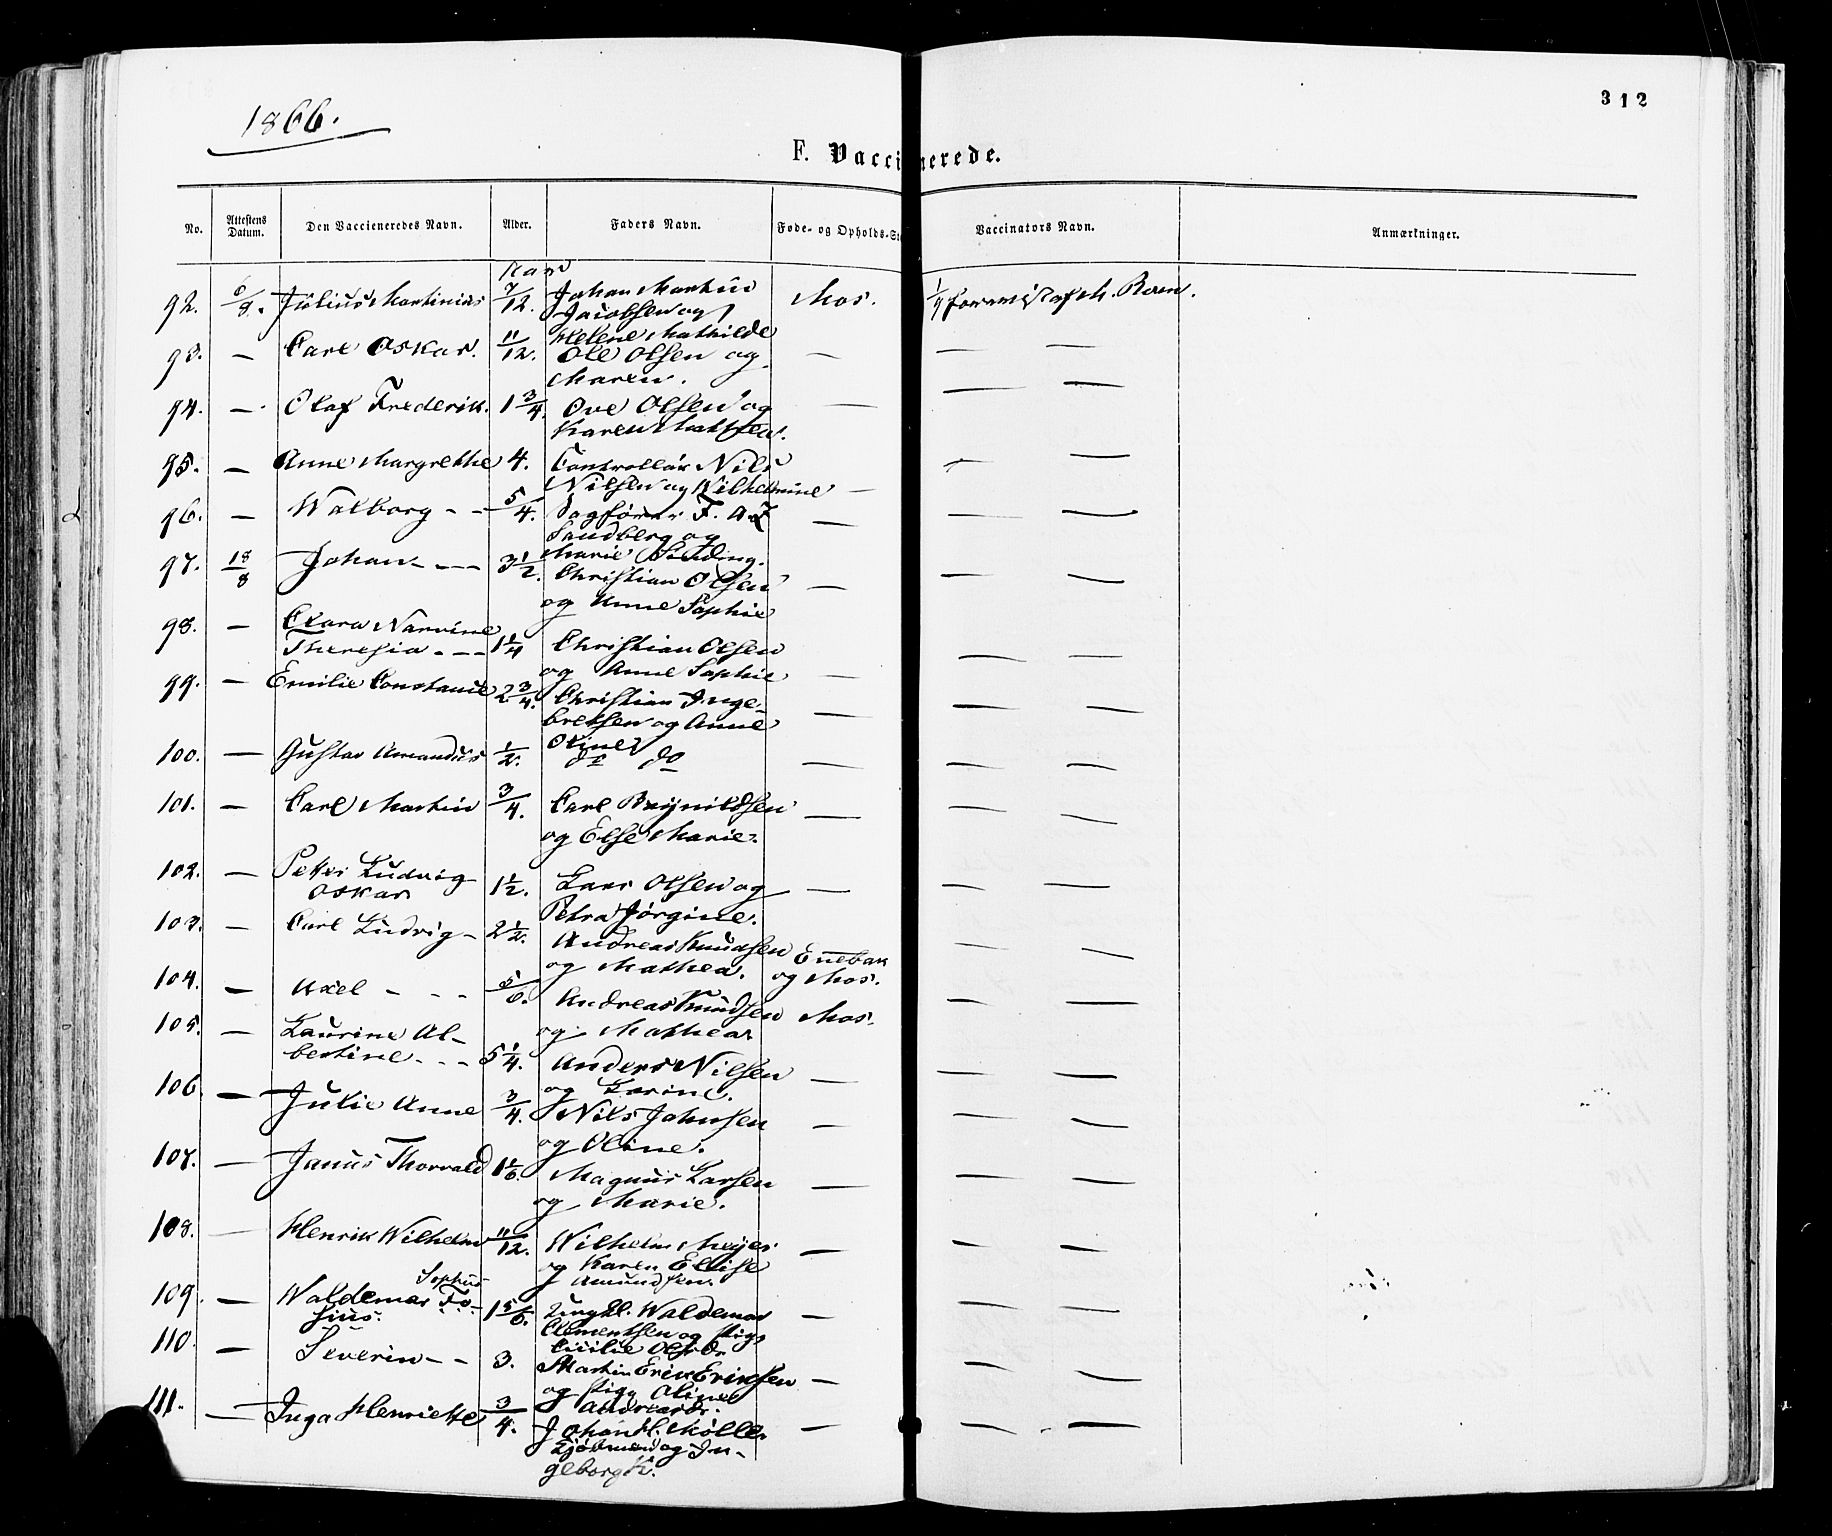 312
1866.
F. Vaccinerede.
No. Attestens Datum. Den Vaccieneredes Navn. Alder. Faders Navn. Føde- og Opholds-St Vaccinators Navn. Anmærkninger.
92. 6/8. Julius Martinius 7/12. Johan Martin Mos. 1/9
Jacobsen og
Helene Mathilde
93. — Carl Oskar. 11/12. Ole Olsen og — — —
Maren.
94. — Olaf Frederik. 1 3/4. Ove Olsen og — — —
Karen Mathea.
95. — Anne Margrethe 4. Controllør Nils — —
Nilsen og Wilhelmine —
96. — Walborg - - 5/4. Sagfører F. A. — — —
Sandberg og
Marie Sinding.
97. 18/8 Johan - - - 3 1/2. Christian Olsen — — —
og Anne Sophie
98. — Clara Narvine
Theresia - - - 1 1/4 Christian Olsen — —
og Anne Sophie —
99. — Emilie Constance 2 3/4. Christian Inge- — — —
bretsen og Anne
Oline
100. — Gustav Amandus 1/2. do do — — —
101. — Carl Martin 3/4. Carl Brynildsen — — —
og Else Marie.
102. — Peter Ludvig
Oskar 1 1/2. Lars Olsen og — — —
Petra Jørgine.
103. — Carl Ludvig - 2 1/2. Andreas Knudsen Enebak — —
og Mathea. og Mos.
104. — Axel - - - 5/6. Andreas Knudsen Mos. — —
og Mathea
105. — Laurine Al-
bertine - - - 5 1/4. Anders Nilsen — — —
og Karine.
106. — Julie Anne 3/4. Nils Johnsen — — —
og Oline.
107. — Janus Thorvald 1 1/6. Magnus Larsen — — —
og Marie.
108. — Henrik Wilhelm 11/12. Wilhelm Meyer — — —
og Karen Elise
Amundsen.
109. — Waldemar Sophus Fo-
sius. 1 5/6. Ungkl. Waldemar — — —
Clementsen og Pige
Cicilie Olsdr.
110. — Severin - - 3. Martin Erik Eriksen — — —
og Pige Oline
Andreasdr.
111. — Inga Henriette 3/4. Johan H. Møller — — —
og In-
geborg K.